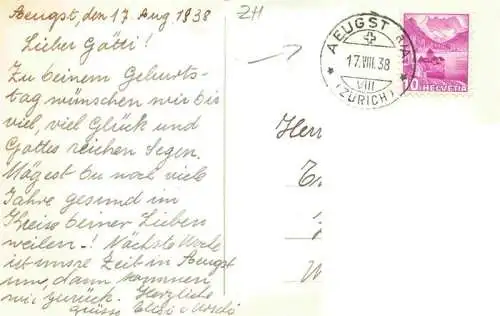 Aeugst, den 17. Aug 1938
Lieber Götti!
Zu deinem Geburts-
tag wünschen wir dir
viel, viel Glück und
Gottes reichen Segen.
Mögest du noch viele
Jahre gesund im
Kreise deiner Lieben
weilen-! Nächste Woche
ist unsre Zeit in Aeugst
um, dann kommen
wir zurück. Herzliche
grüsse
ZH
AEUGST
17.VIII.38
VIII
(ZÜRICH)
10 HELVETIA
Herr